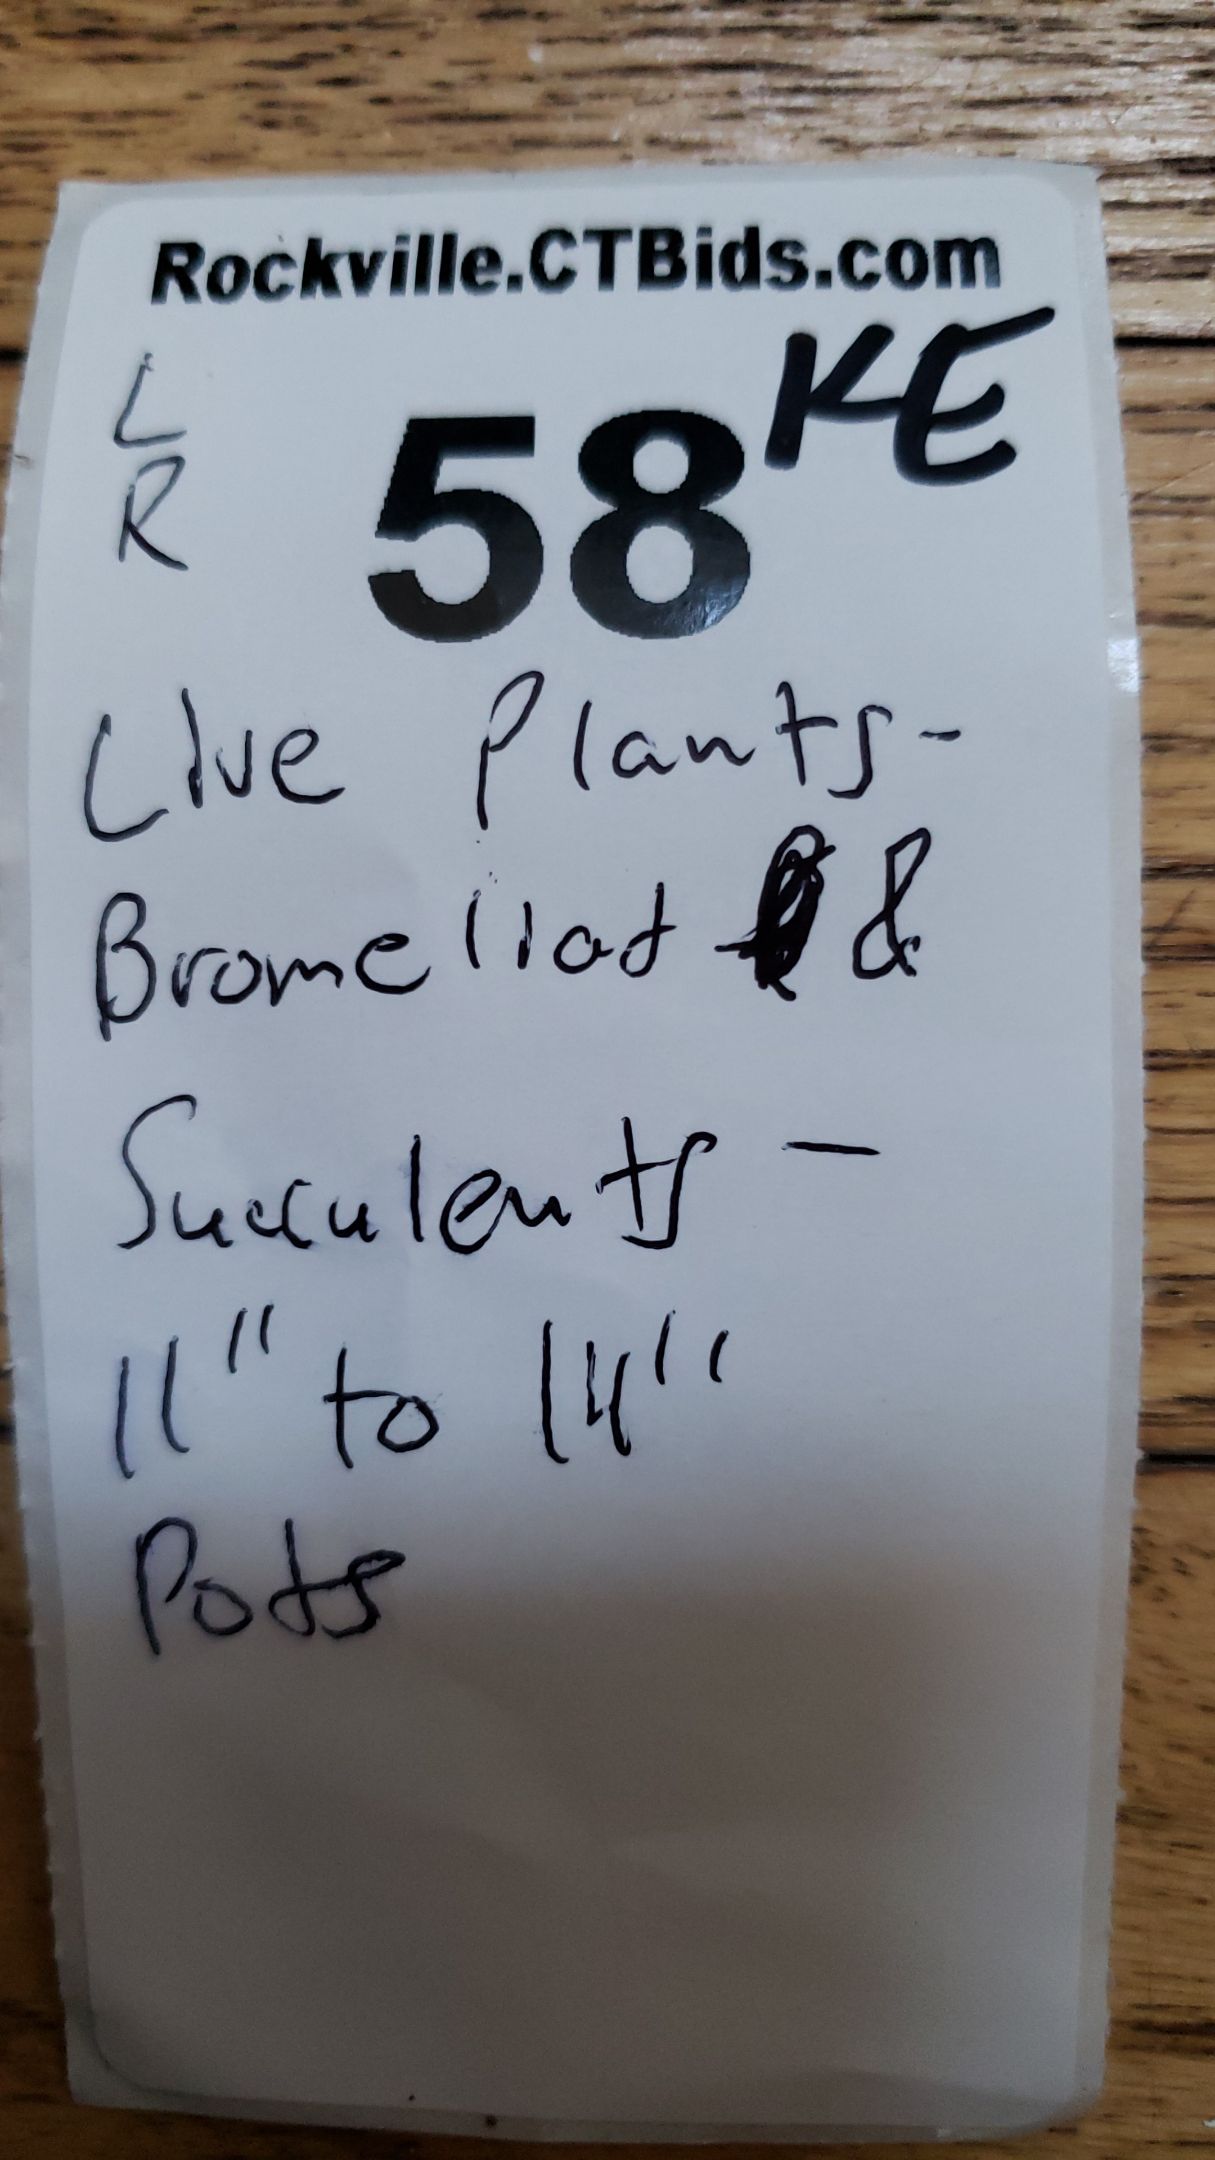 Rockville.CTBids.com
L
R
58 KE
Live Plants-
Bromeliad &
Succulents -
11" to 14"
Pots